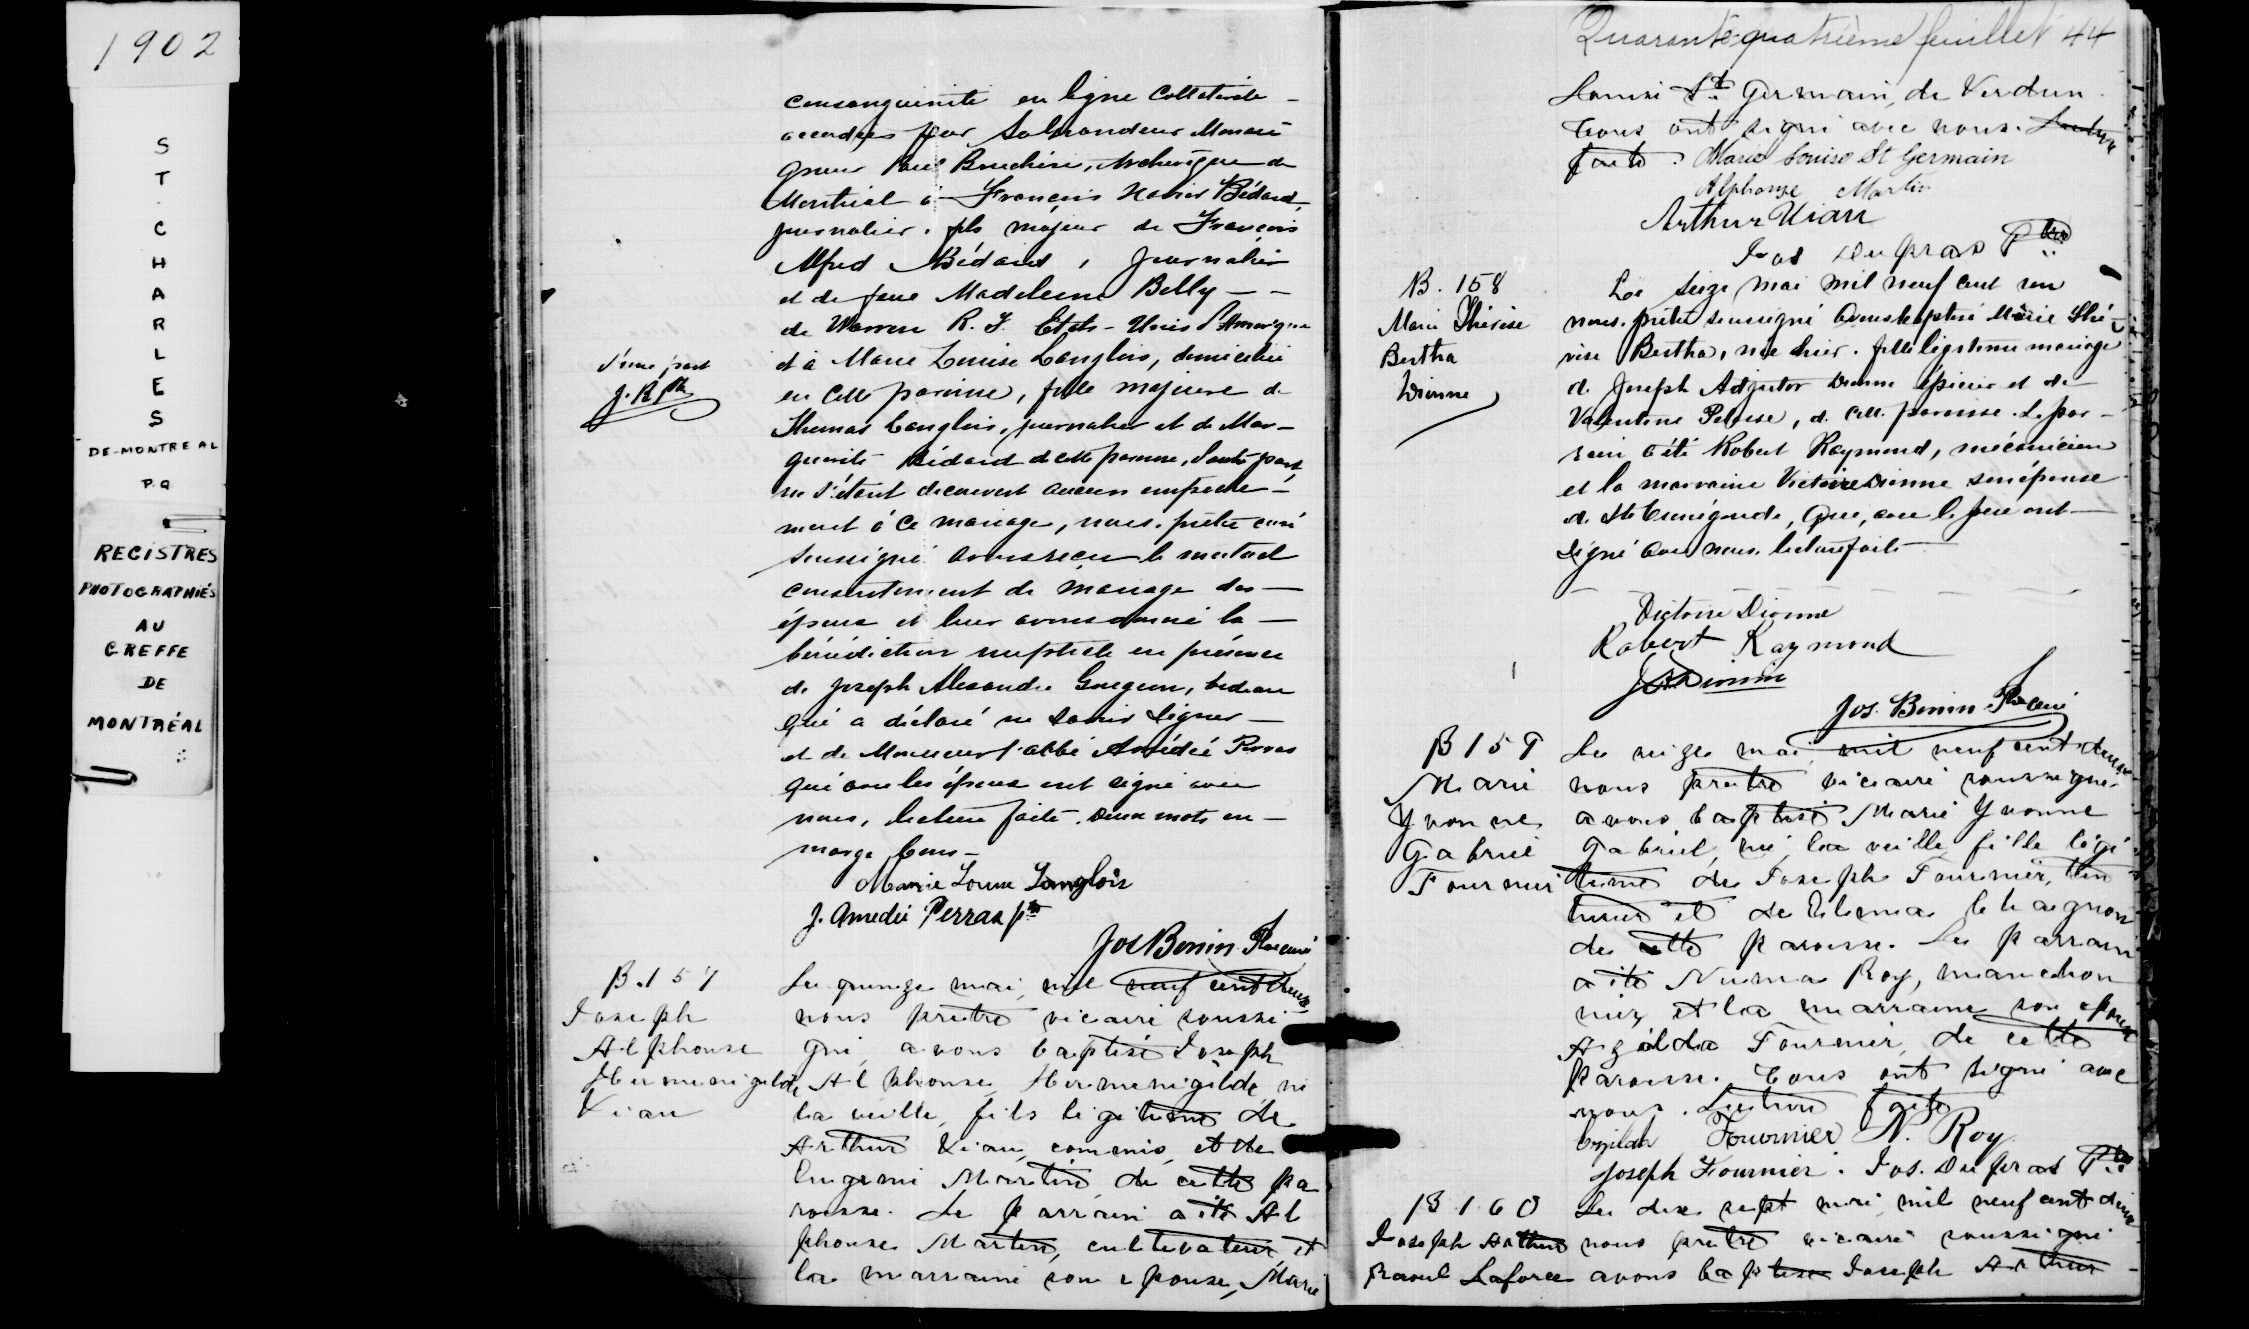 1902
ST. CHARLES
DE-MONTREAL
P.Q
REGISTRES
PHOTOGRAPHIÉS
AU
GREFFE
DE
MONTRÉAL
consanguinité en ligne collatérale
accordée par Sa Grandeur Monsei
gneur Paul Bruchési, Archevêque de
Montréal à François Xavier Bédard,
journalier, fils majeur de François
Alfred Bédard, journalier
et de feue Madeleine Belly
de Warren R. I. Etats-Unis d'Amérique
d'une part
J. B. Ptre
et à Marie Louise Langlois, domiciliée
en cette paroisse, fille majeure de
Thomas Langlois, journalier et de Mar-
guerite Bédard de cette paroisse, d'autre part,
ne s'étant découvert aucun empêche-
ment à ce mariage, nous, prêtre curé
soussigné avons reçu le mutuel
consentement de mariage des
époux et leur avons donné la
bénédiction nuptiale en présence
de Joseph Alexandre bedeau
qui a déclaré ne savoir signer
et de Monsieur l'abbé Amédée Perras
qui avec les époux ont signé avec
nous, lecture faite. Deux mots en
marge bons-
Marie Louise Langlois
J. Amedée Perras ptre
Jos Bonin Ptre curé
B. 157
Joseph
Alphonse
Hermenigilde
Viau
Le quinze mai, mil neuf cent deux
nous prêtre vicaire soussi
gné, avons baptisé Joseph
Alphonse Hermenigilde né
la veille, fils légitime de
Arthur Viau, commis, et de
Eugenie Martin, de cette pa
roisse. Le parrain a été Al
phonse Martin, cultivateur et
la marraine son epouse, Marie
Quarante-quatrième feuillet 44
Louise St. Germain, de Verdun.
Tous ont signé avec nous. Lecture
faite. Marie Louise St Germain
Alphonse Martin
Arthur Viau
Jos Dupras Ptre
B. 158
Marie Thérèse
Bertha
Dionne
Le seize mai mil neuf cent
nous, prêtre soussigné avons baptisé Marie Thé
rèse Bertha, née hier, fille légitime mariage
de Joseph Adjutor Dionne épicier et de
Valentine Pelisse, de cette paroisse. Le par-
rain a été Robert Raymond, mécanicien
et la marraine Victoire Dionne son épouse
de Ste Cunégonde, qui, avec le père ont
signé avec nous, lecture faite
Victoire Dionne
Robert Raymond
J A Dionne
Jos. Bonin Ptre curé
B 159
Marie
Yvonne
Gabriel
Fournier
Le seize mai, mil neuf cent deux
nous prêtre vicaire soussigné
avons baptisé Marie Yvonne
Gabriel, née la veille fille légi
time de Joseph Fournier,
et de
de cette paroisse. Le parrain
a été Numa Roy,
et la marraine son epouse
Azilda Fournier, de cette
paroisse. Tous ont signé avec
nous. Lecture faite
Fournier N. Roy
Joseph Fournier. Jos. Dupras Ptre
B 160
Joseph Arthur
Raoul Laforce
Le dix sept mai, mil neuf cent deux
nous prêtre vicaire soussigné
avons baptisé Joseph Arthur